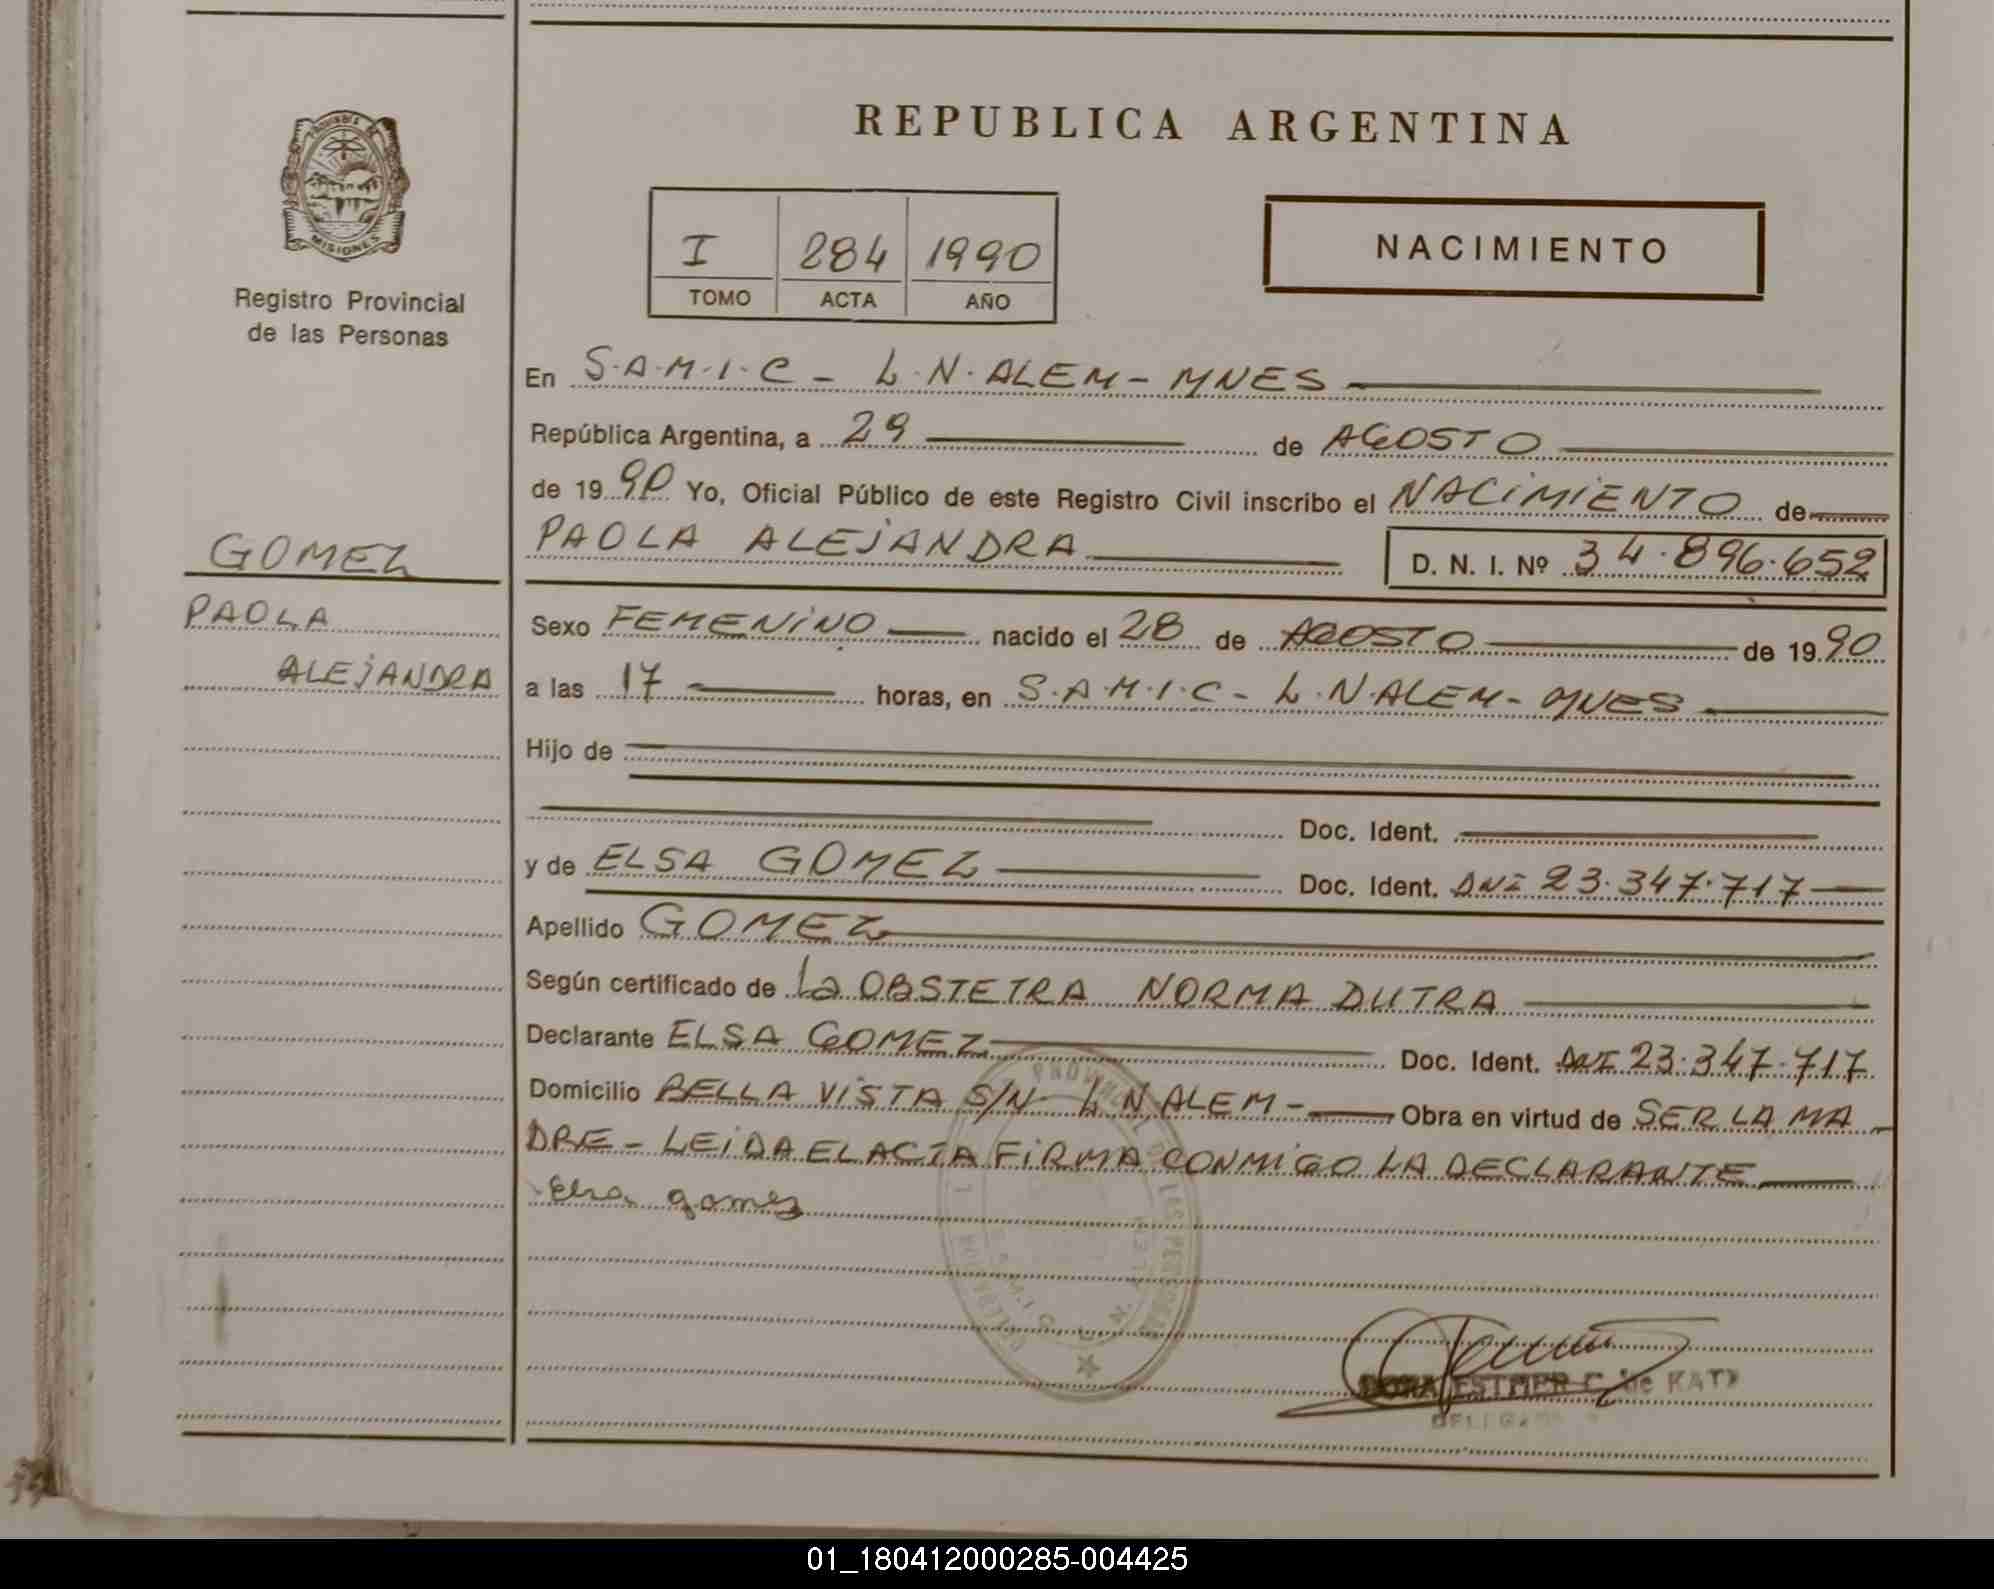 REPUBLICA ARGENTINA
PROVINCIA DE
MISIONES
Registro Provincial
de las Personas
I 284 1990
TOMO ACTA AÑO
NACIMIENTO
En S.A.M.I.C - L.N.ALEM - MNES
República Argentina, a 29 de AGOSTO
de 1990 Yo, Oficial Público de este Registro Civil inscribo el NACIMIENTO de
PAOLA ALEJANDRA D. N. I. Nº 34.896.652
GOMEZ
PAOLA
ALEJANDRA
Sexo FEMENINO nacido el 28 de AGOSTO de 1990
a las 17 horas, en S.A.M.I.C - L.N.ALEM - MNES
Hijo de
Doc. Ident.
y de ELSA GOMEZ Doc. Ident. DNI 23.347.717
Apellido GOMEZ
Según certificado de La OBSTETRA NORMA DUTRA
Declarante ELSA GOMEZ Doc. Ident. DNI 23.347.717
Domicilio BELLA VISTA S/N L N ALEM - Obra en virtud de SER LA MA
DRE - LEIDA EL ACTA FIRMA CONMIGO LA DECLARANTE
Elsa gomez
DORA ESTHER C. de KATZ
01_180412000285-004425